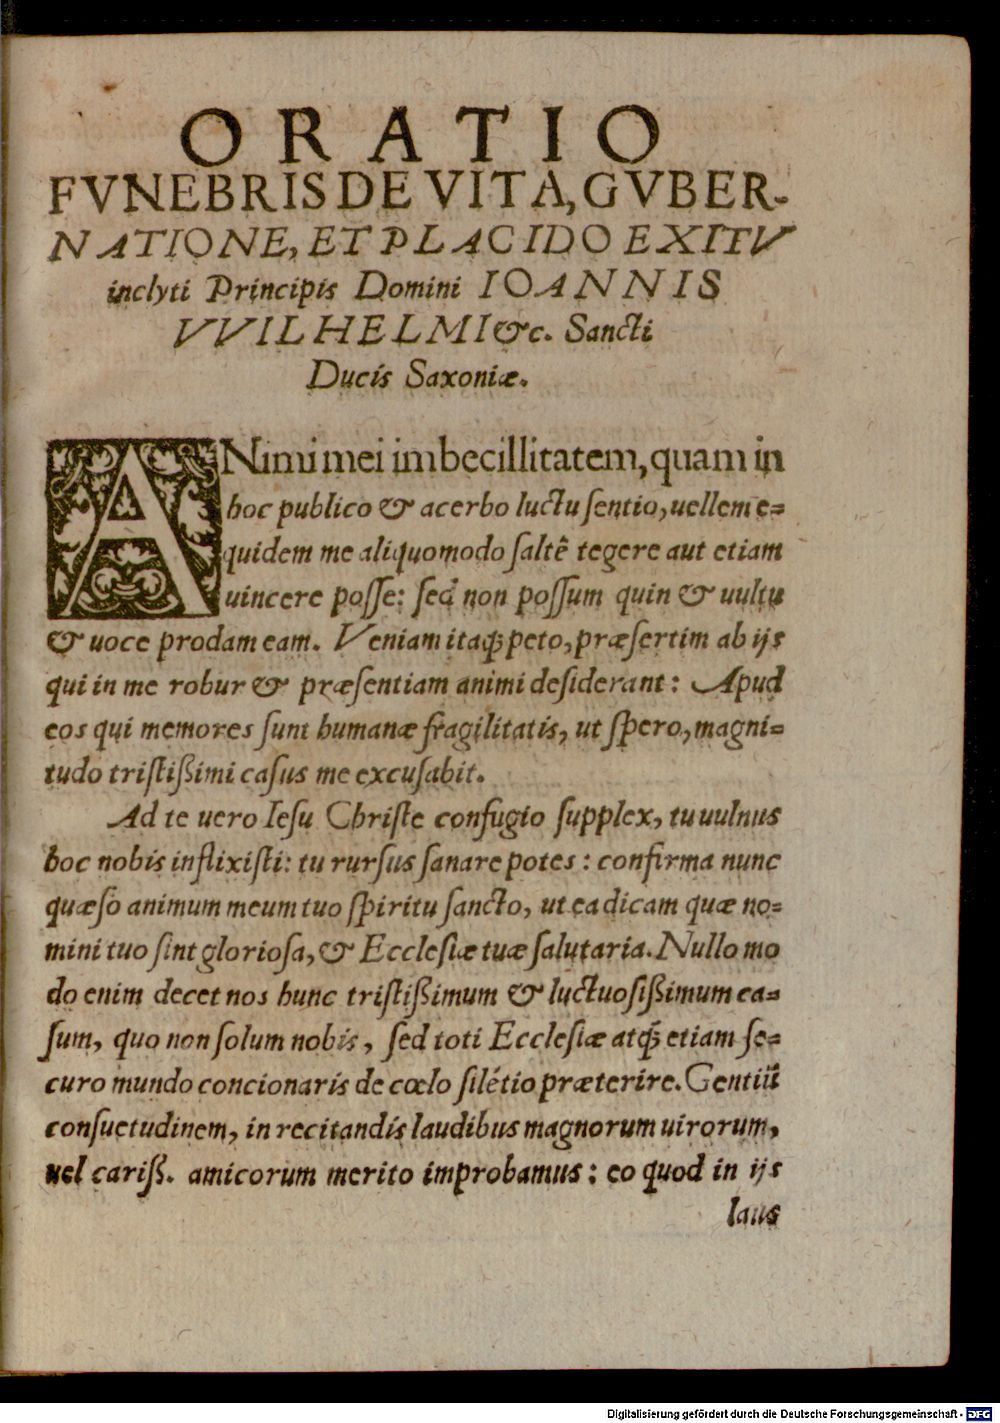 ORATIO
FVNEBRIS DE VITA, GVBER-
NATIONE, ET PLACIDO EXITV
inclyti Principis Domini IOANNIS
VVILHELMI &c. Sancti
Ducis Saxoniæ.
ANimi mei imbecillitatem, quam in
hoc publico & acerbo luctu sentio, uellem e=
quidem me aliquomodo saltẽ tegere aut etiam
uincere posse: sed non possum quin & uultu
& uoce prodam eam. Veniam itaq; peto, præsertim ab ijs
qui in me robur & præsentiam animi desiderant: Apud
eos qui memores sunt humanæ fragilitatis, ut spero, magni=
tudo tristißimi casus me excusabit.
Ad te uero Iesu Christe confugio supplex, tu uulnus
hoc nobis inflixisti: tu rursus sanare potes: confirma nunc
quæso animum meum tuo spiritu sancto, ut ea dicam quæ no=
mini tuo sint gloriosa, & Ecclesiæ tuæ salutaria. Nullo mo
do enim decet nos hunc tristißimum & luctuosißimum ca=
sum, quo non solum nobis, sed toti Ecclesiæ atq; etiam se=
curo mundo concionaris de cœlo silẽtio præterire. Gentiũ
consuetudinem, in recitandis laudibus magnorum uirorum,
uel cariß. amicorum merito improbamus: eo quod in ijs
laus
Digitalisierung gefördert durch die Deutsche Forschungsgemeinschaft - DFG